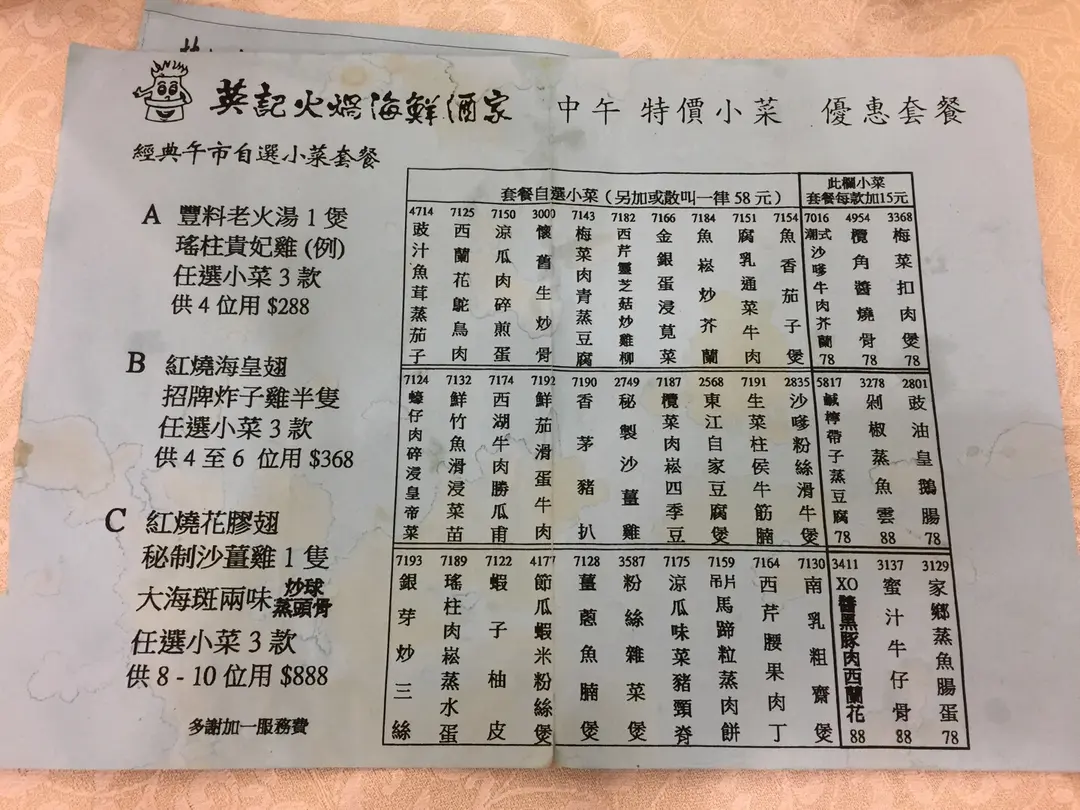 英記火焗海鮮酒家
中午 特價小菜 優惠套餐
經典午市自選小菜套餐
A 豐料老火湯1煲
瑤柱貴妃雞(例)
任選小菜3款
供4位用$288
B 紅燒海皇翅
招牌炸子雞半隻
任選小菜3款
供4至6 位用$368
C 紅燒花膠翅
秘制沙薑雞1隻
大海斑兩味 炒球 蒸頭骨
任選小菜3款
供8-10位用$888
多謝加一服務費
套餐自選小菜(另加或散叫一律58元)
4714 豉汁魚茸蒸茄子
7125 西蘭花鴕鳥肉
7150 涼瓜肉碎煎蛋
3000 懷舊生炒骨
7143 梅菜肉青蒸豆腐
7182 西芹靈芝菇炒雞柳
7166 金銀蛋浸莧菜
7184 魚崧炒芥蘭
7151 腐乳通菜牛肉
7154 魚香茄子煲
此欄小菜
套餐每款加15元
7016 潮式沙嗲牛肉芥蘭 78
4954 欖角醬燒骨 78
3368 梅菜扣肉煲 78
7124 蠔仔肉碎浸皇帝菜
7132 鮮竹魚滑浸菜苗
7174 西湖牛肉勝瓜甫
7192 鮮茄滑蛋牛肉
7190 香茅豬扒
2749 秘製沙薑雞
7187 欖菜肉崧四季豆
2568 東江自家豆腐煲
7191 生菜柱侯牛筋腩煲
2835 沙嗲粉絲滑牛煲
5817 鹹檸帶子蒸豆腐 78
3278 剁椒蒸魚雲 88
2801 豉油皇鵝腸 78
7193 銀芽炒三絲
7189 瑤柱肉崧蒸水蛋
7122 蝦子柚皮
4177 節瓜蝦米粉絲煲
7128 薑蔥魚腩煲
3587 粉絲雜菜煲
7175 涼瓜味菜豬頸脊
7159 吊片馬蹄粒蒸肉餅
7164 西芹腰果肉丁
7130 南乳粗齋煲
3411 XO醬黑豚肉西蘭花 88
3137 蜜汁牛仔骨 88
3129 家鄉蒸魚腸蛋 78